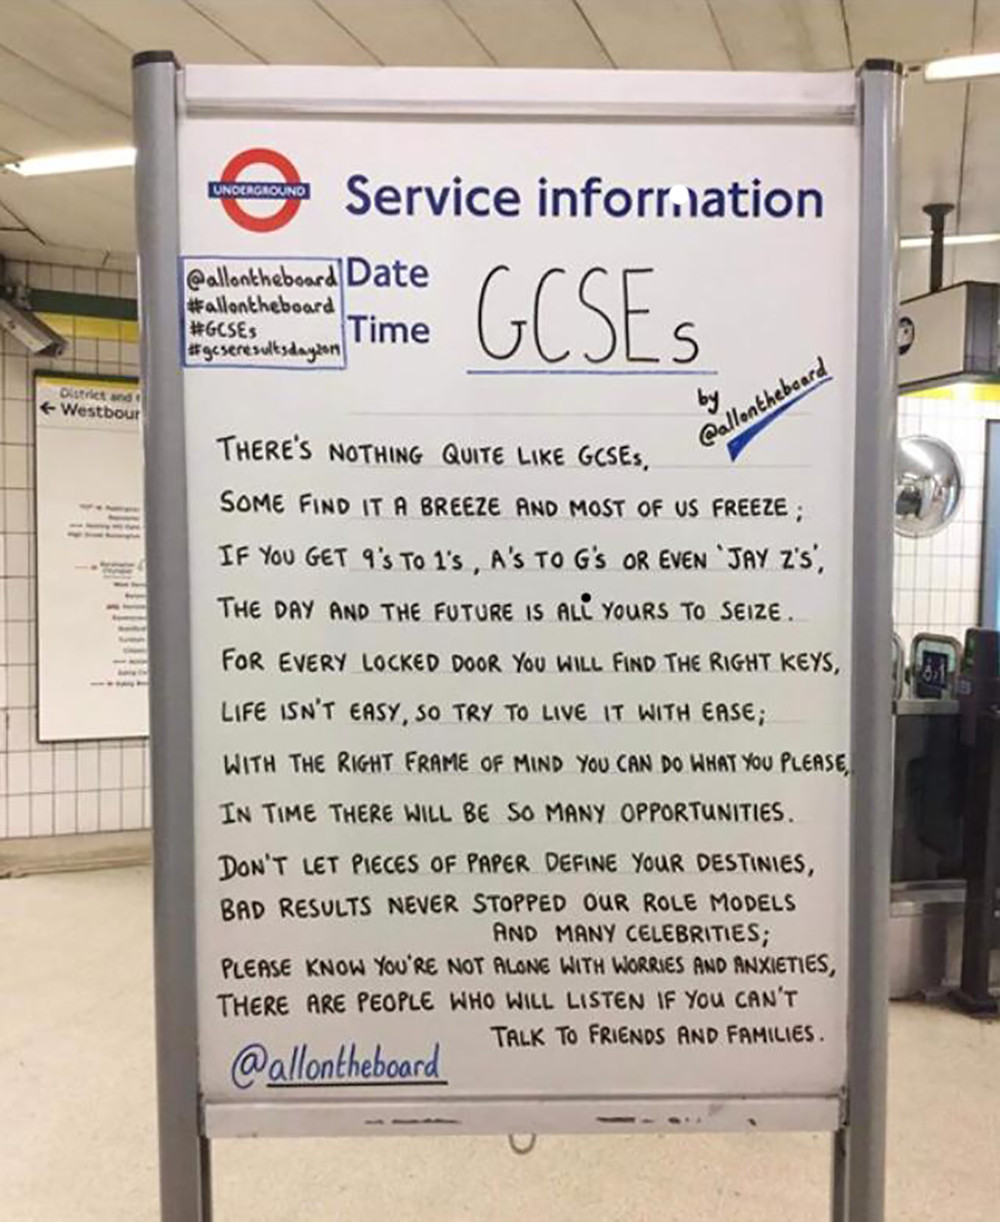 UNDERGROUND
Service information
@allontheboard
#allontheboard
#GCSEs
#gcseresultsday2019
Date
Time
GCSEs
by
@allontheboard
THERE'S NOTHING QUITE LIKE GCSEs,
SOME FIND IT A BREEZE AND MOST OF US FREEZE;
IF YOU GET 9's TO 1's, A's TO G's OR EVEN 'JAY Z's',
THE DAY AND THE FUTURE IS ALL YOURS TO SEIZE.
FOR EVERY LOCKED DOOR YOU WILL FIND THE RIGHT KEYS,
LIFE ISN'T EASY, SO TRY TO LIVE IT WITH EASE;
WITH THE RIGHT FRAME OF MIND YOU CAN DO WHAT YOU PLEASE,
IN TIME THERE WILL BE SO MANY OPPORTUNITIES.
DON'T LET PIECES OF PAPER DEFINE YOUR DESTINIES,
BAD RESULTS NEVER STOPPED OUR ROLE MODELS
AND MANY CELEBRITIES;
PLEASE KNOW YOU'RE NOT ALONE WITH WORRIES AND ANXIETIES,
THERE ARE PEOPLE WHO WILL LISTEN IF YOU CAN'T
TALK TO FRIENDS AND FAMILIES.
@allontheboard
District and
← Westbour